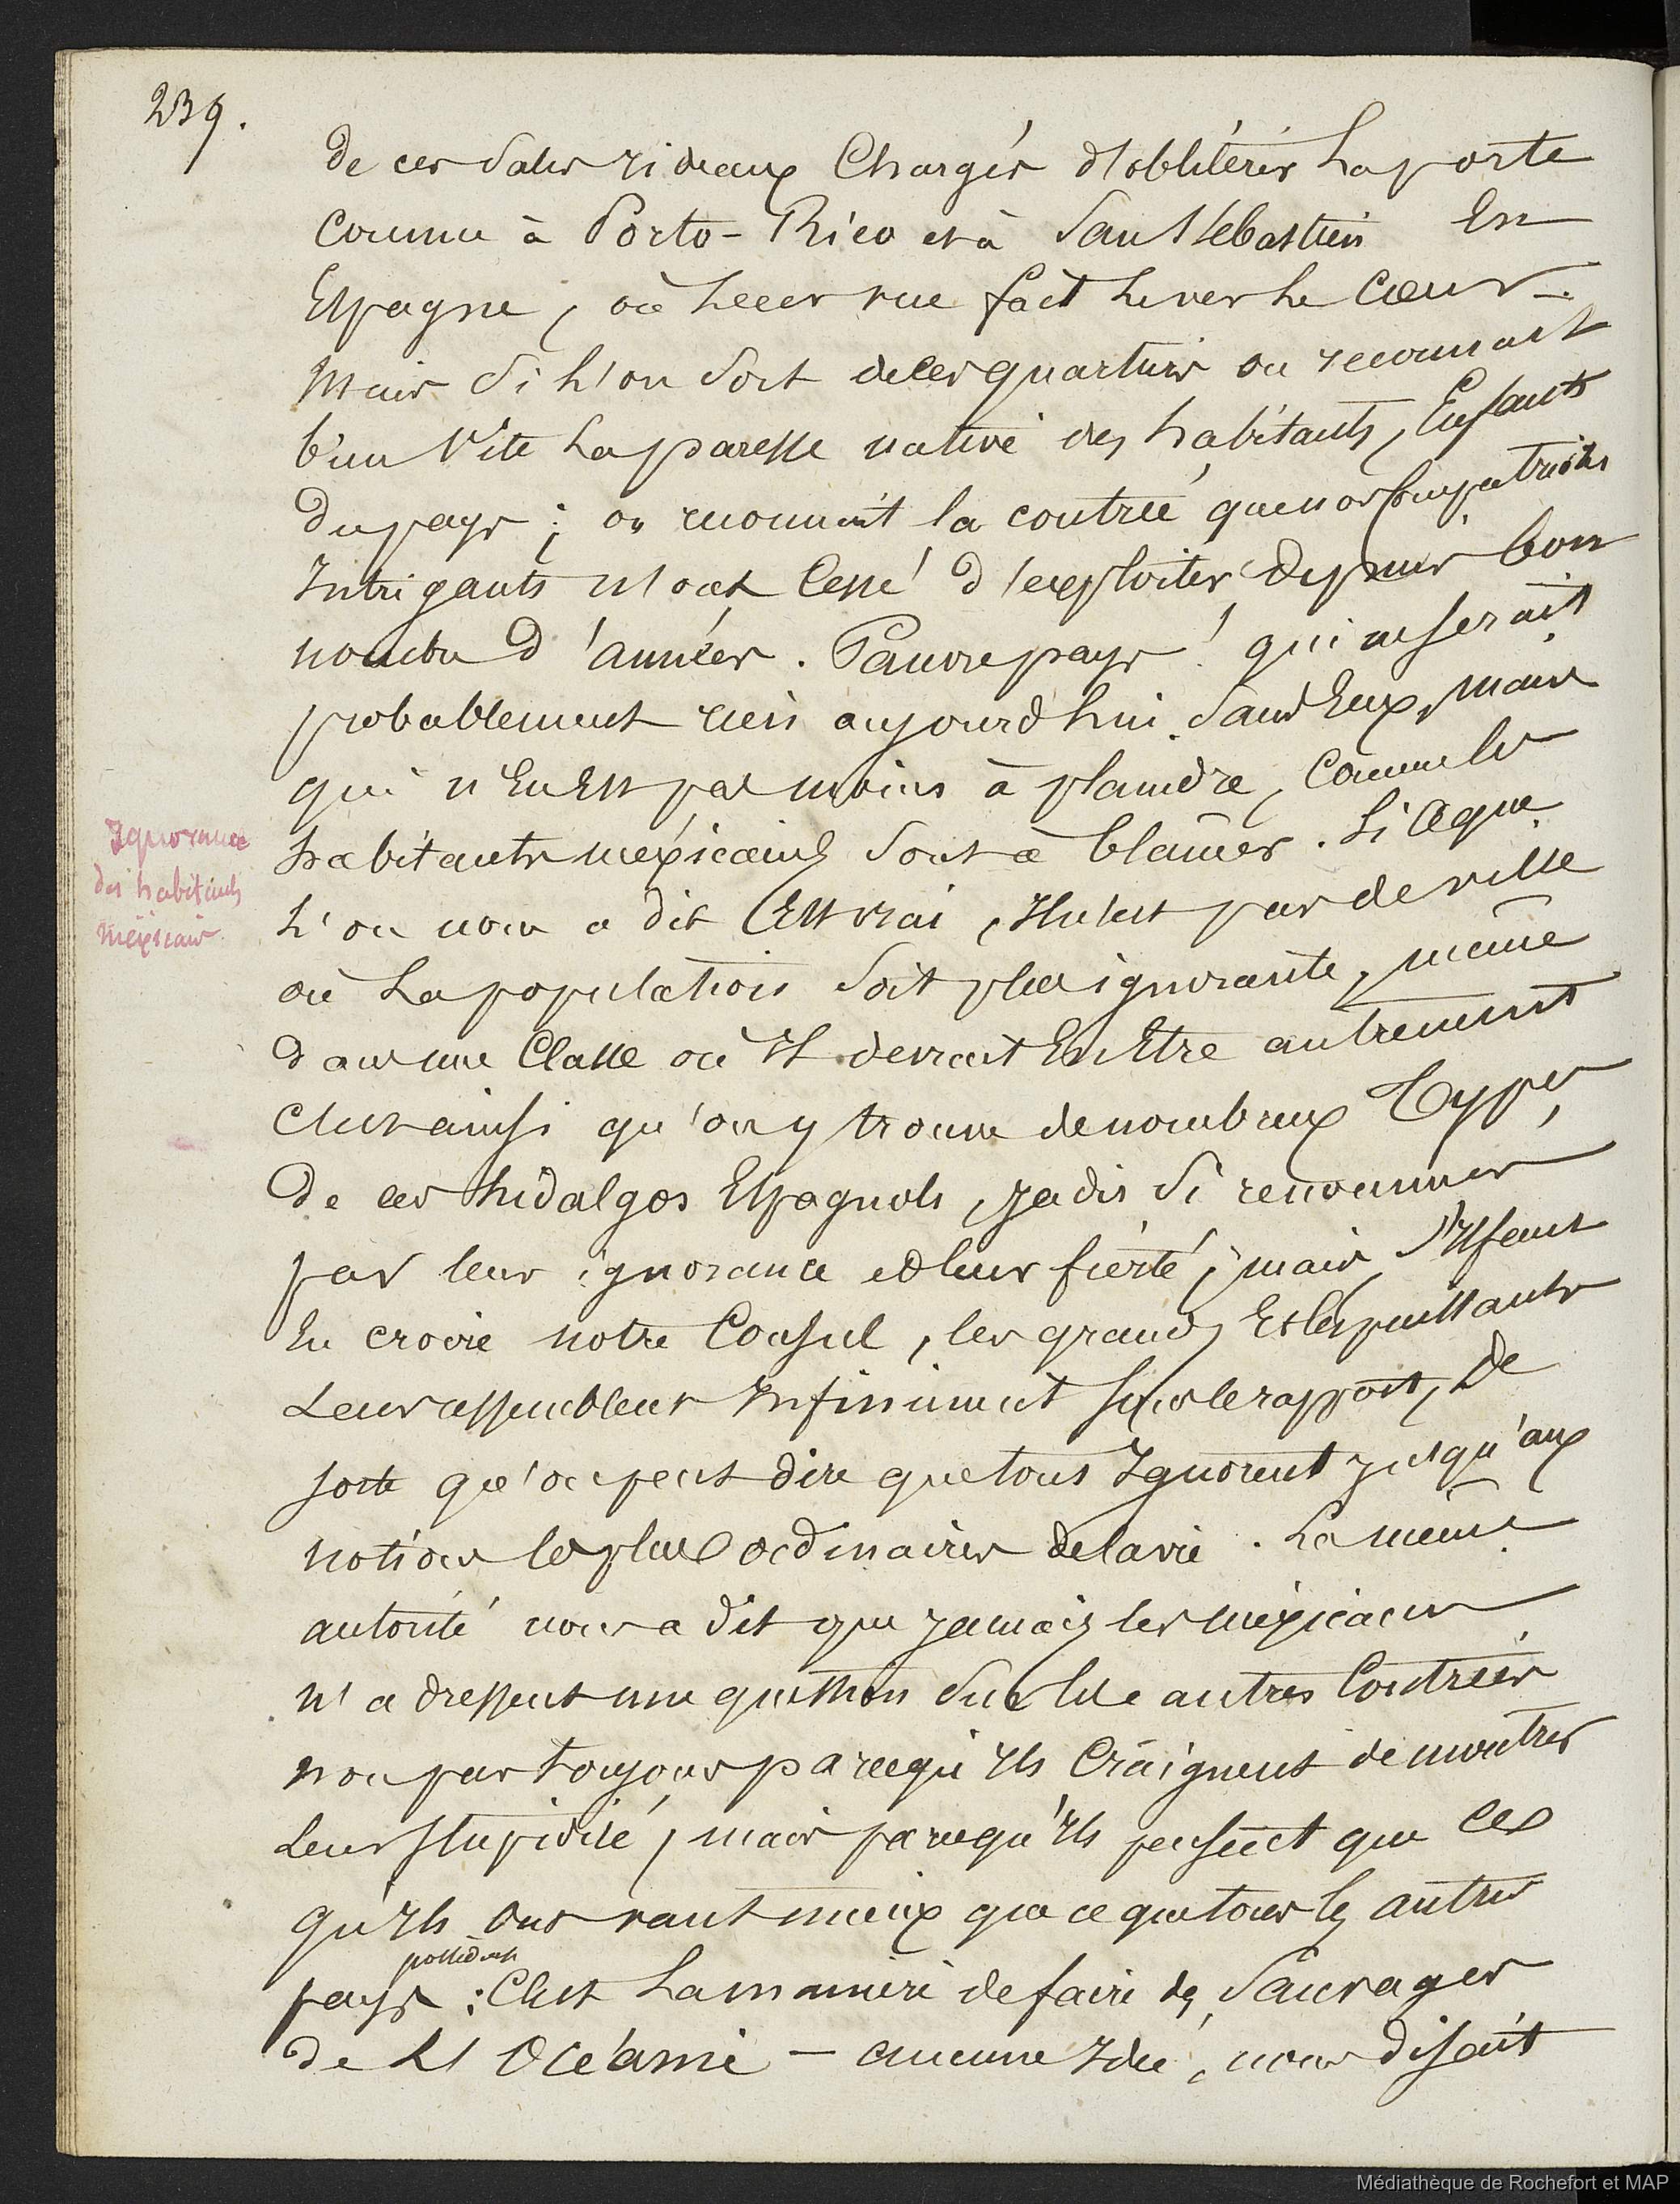 239.
de ces sales rideaux Chargés d'oblitérer La porte
comme à Porto-Rico et à San Sébastien En
Espagne, où Leur vue fait lever Le Cœur.
Mais Si L'on Sort de ces quartiers on reconnait
bien Vite La paresse native des habitants, Enfants
Du pays ; on reconnait la contrée que nos Compatriotes
Intrigants n'ont Cessé d'exploiter Depuis bon
nombre d'années. Pauvre pays ! qui ne serait
probablement rien aujourd'hui Sans Eux, mais
qui n'En Est pas moins à plaindre, Comme les
Ignorance
des habitants
méxicains
habitants méxicains Sont à blâmer. Si Ce que
L'on nous a dit Est vrai, Il n'est pas de ville
où La population Soit plus ignorante, même
dans une Classe où Il devrait En Etre autrement
C'est ainsi qu'on y trouve de nombreux Types
De ces hidalgos Espagnols, jadis Si renommés
par leur ignorance et leur fierté ; mais S'Il faut
En croire notre Consul, les grands Et les puissants
Leur ressemblent Infiniment sous le rapport, De
sorte qu'on peut dire que tous Ignorent jusqu'aux
notions les plus ordinaires de la vie. La même
autorité nous a dit que jamais les méxicains
n'adressent une question Sur les autres Contrées
non pas toujours parcequ'Ils Craignent de montrer
Leur stupidité, mais parcequ'Ils pensent que Ce
qu'Ils Ont vaut mieux que ce que tous les autres
possèdent
pays : C'est La manière de faire des Sauvages
de L'Océanie - aucune Idée, nous disait
Médiathèque de Rochefort et MAP